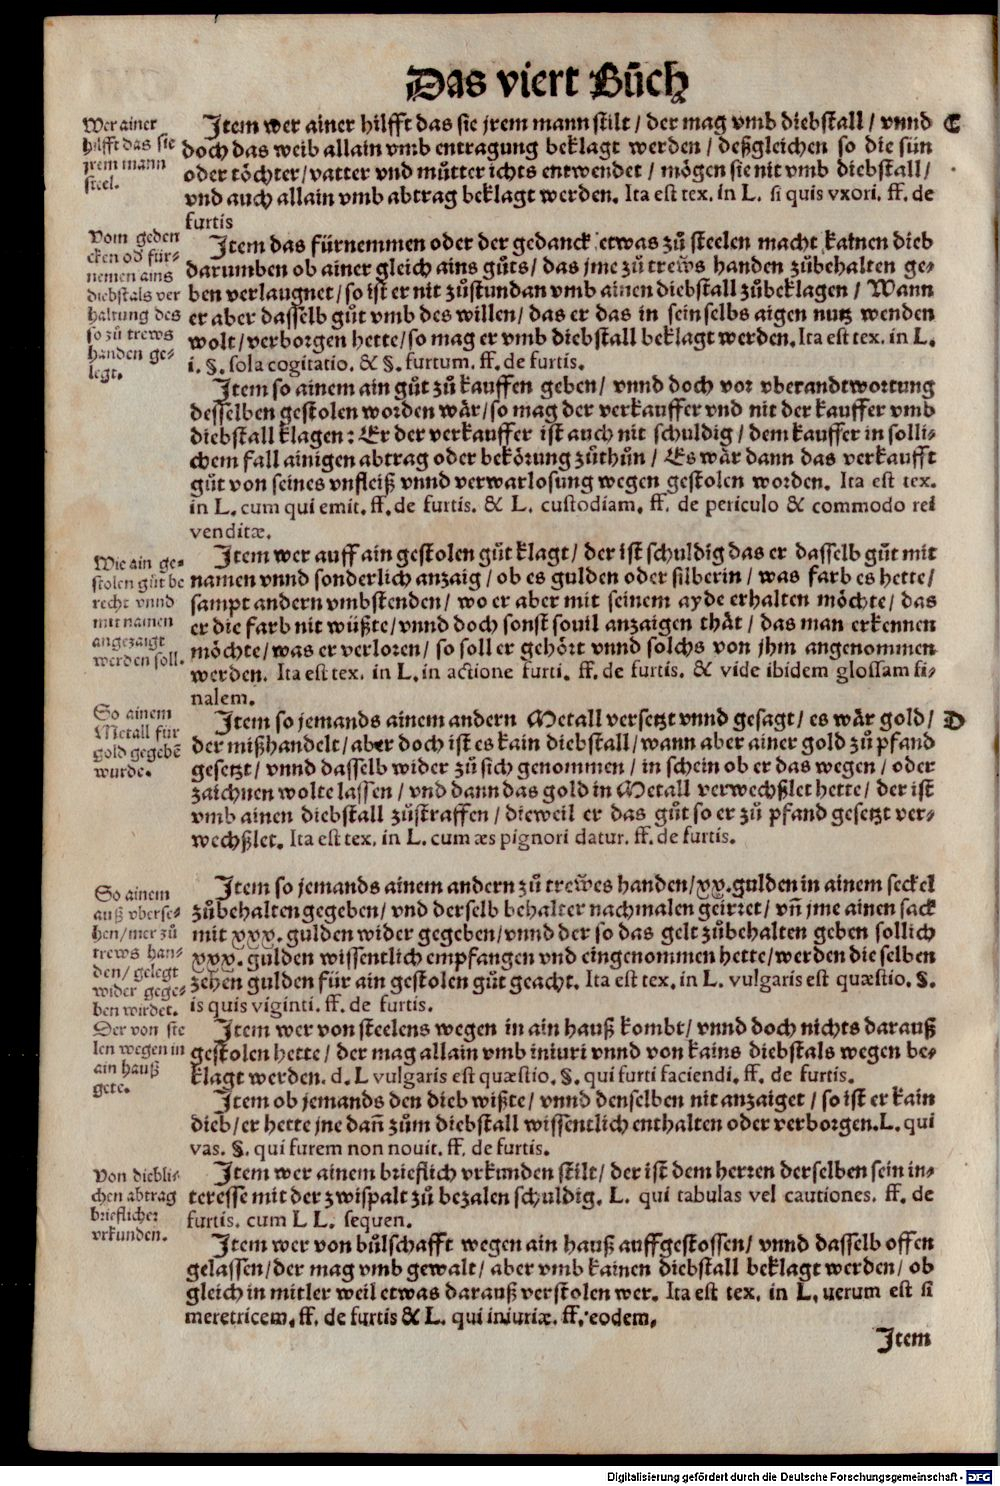 Das viert Bůch
Wer ainer
hilfft das sie
jrem mann
steel.
Item wer ainer hilfft das sie jrem mann stilt / der mag vmb diebstall / vnnd
C
doch das weib allain vmb entragung beklagt werden / deßgleichen so die sün
oder töchter / vatter vnd můtter ichts entwendet / mögen sie nit vmb diebstall /
vnd auch allain vmb abtrag beklagt werden. Ita est tex. in L. si quis vxori. ff. de
furtis
Vom geden
cken od für-
nemen ains
diebstals ver
haltung des
so zů trews
handen ge-
legt.
Item das fürnemmen oder der gedanck etwas zů steelen macht kainen dieb
darumben ob ainer gleich ains gůts / das jme zů trews handen zůbehalten ge-
ben verlaugnet / so ist er nit zůstundan vmb ainen diebstall zůbeklagen / Wann
er aber dasselb gůt vmb des willen / das er das in sein selbs aigen nutz wenden
wolt / verborgen hette / so mag er vmb diebstall beklagt werden. Ita est tex. in L.
i. §. sola cogitatio. & §. furtum. ff. de furtis.
Item so ainem ain gůt zů kauffen geben / vnnd doch vor vberandtwortung
desselben gestolen worden wär / so mag der verkauffer vnd nit der kauffer vmb
diebstall klagen : Er der verkauffer ist auch nit schuldig / dem kauffer in solli-
chem fall ainigen abtrag oder bekörung zůthůn / Es wär dann das verkaufft
gůt von seines vnfleiß vnnd verwarlosung wegen gestolen worden. Ita est tex.
in L. cum qui emit. ff. de furtis. & L. custodiam. ff. de periculo & commodo rei
venditæ.
Wie ain ge-
stolen gůt be
recht vnnd
mit namen
angezaigt
werden soll.
Item wer auff ain gestolen gůt klagt / der ist schuldig das er dasselb gůt mit
namen vnnd sonderlich anzaig / ob es gulden oder silberin / was farb es hette /
sampt andern vmbstenden / wo er aber mit seinem ayde erhalten möchte / das
er die farb nit wüßte / vnnd doch sonst souil anzaigen thät / das man erkennen
möchte / was er verloren / so soll er gehört vnnd solchs von jhm angenommen
werden. Ita est tex. in L. in actione furti. ff. de furtis. & vide ibidem glossam fi-
nalem.
So ainem
Metall für
gold gegebē
wurde.
Item so jemands ainem andern Metall versetzt vnnd gesagt / es wär gold /
D
der mißhandelt / aber doch ist es kain diebstall / wann aber ainer gold zů pfand
gesetzt / vnnd dasselb wider zů sich genommen / in schein ob er das wegen / oder
zaichnen wolte lassen / vnd dann das gold in Metall verwechßlet hette / der ist
vmb ainen diebstall zůstraffen / dieweil er das gůt so er zů pfand gesetzt ver-
wechßlet. Ita est tex. in L. cum æs pignori datur. ff. de furtis.
So ainem
auß vberse-
hen / mer zů
trews han-
den / gelegt
wider gege-
ben wirdet.
Item so jemands ainem andern zů trewes handen / xx. gulden in ainem seckel
zůbehalten gegeben / vnd derselb behalter nachmalen geirret / vñ jme ainen sack
mit xxx. gulden wider gegeben / vnnd der so das gelt zůbehalten geben sollich
xxx. gulden wissentlich empfangen vnd eingenommen hette / werden die selben
zehen gulden für ain gestolen gůt geacht. Ita est tex. in L. vulgaris est quæstio. §.
is quis viginti. ff. de furtis.
Der von ste
len wegen in
ain hauß
gete.
Item wer von steelens wegen in ain hauß kombt / vnnd doch nichts darauß
gestolen hette / der mag allain vmb iniuri vnnd von kains diebstals wegen be-
klagt werden. d. L vulgaris est quæstio. §. qui furti faciendi. ff. de furtis.
Item ob jemands den dieb wißte / vnnd denselben nit anzaiget / so ist er kain
dieb / er hette jne dañ zům diebstall wissentlich enthalten oder verborgen. L. qui
vas. §. qui furem non nouit. ff. de furtis.
Von diebli-
chen abtrag
brieflicher
vrkunden.
Item wer ainem brieflich vrkunden stilt / der ist dem herren derselben sein in-
teresse mit der zwispalt zů bezalen schuldig. L. qui tabulas vel cautiones. ff. de
furtis. cum L L. sequen.
Item wer von bůlschafft wegen ain hauß auffgestossen / vnnd dasselb offen
gelassen / der mag vmb gewalt / aber vmb kainen diebstall beklagt werden / ob
gleich in mitler weil etwas darauß verstolen wer. Ita est tex. in L. uerum est si
meretricem. ff. de furtis & L. qui iniuriæ. ff. eodem.
Item
Digitalisierung gefördert durch die Deutsche Forschungsgemeinschaft - DFG